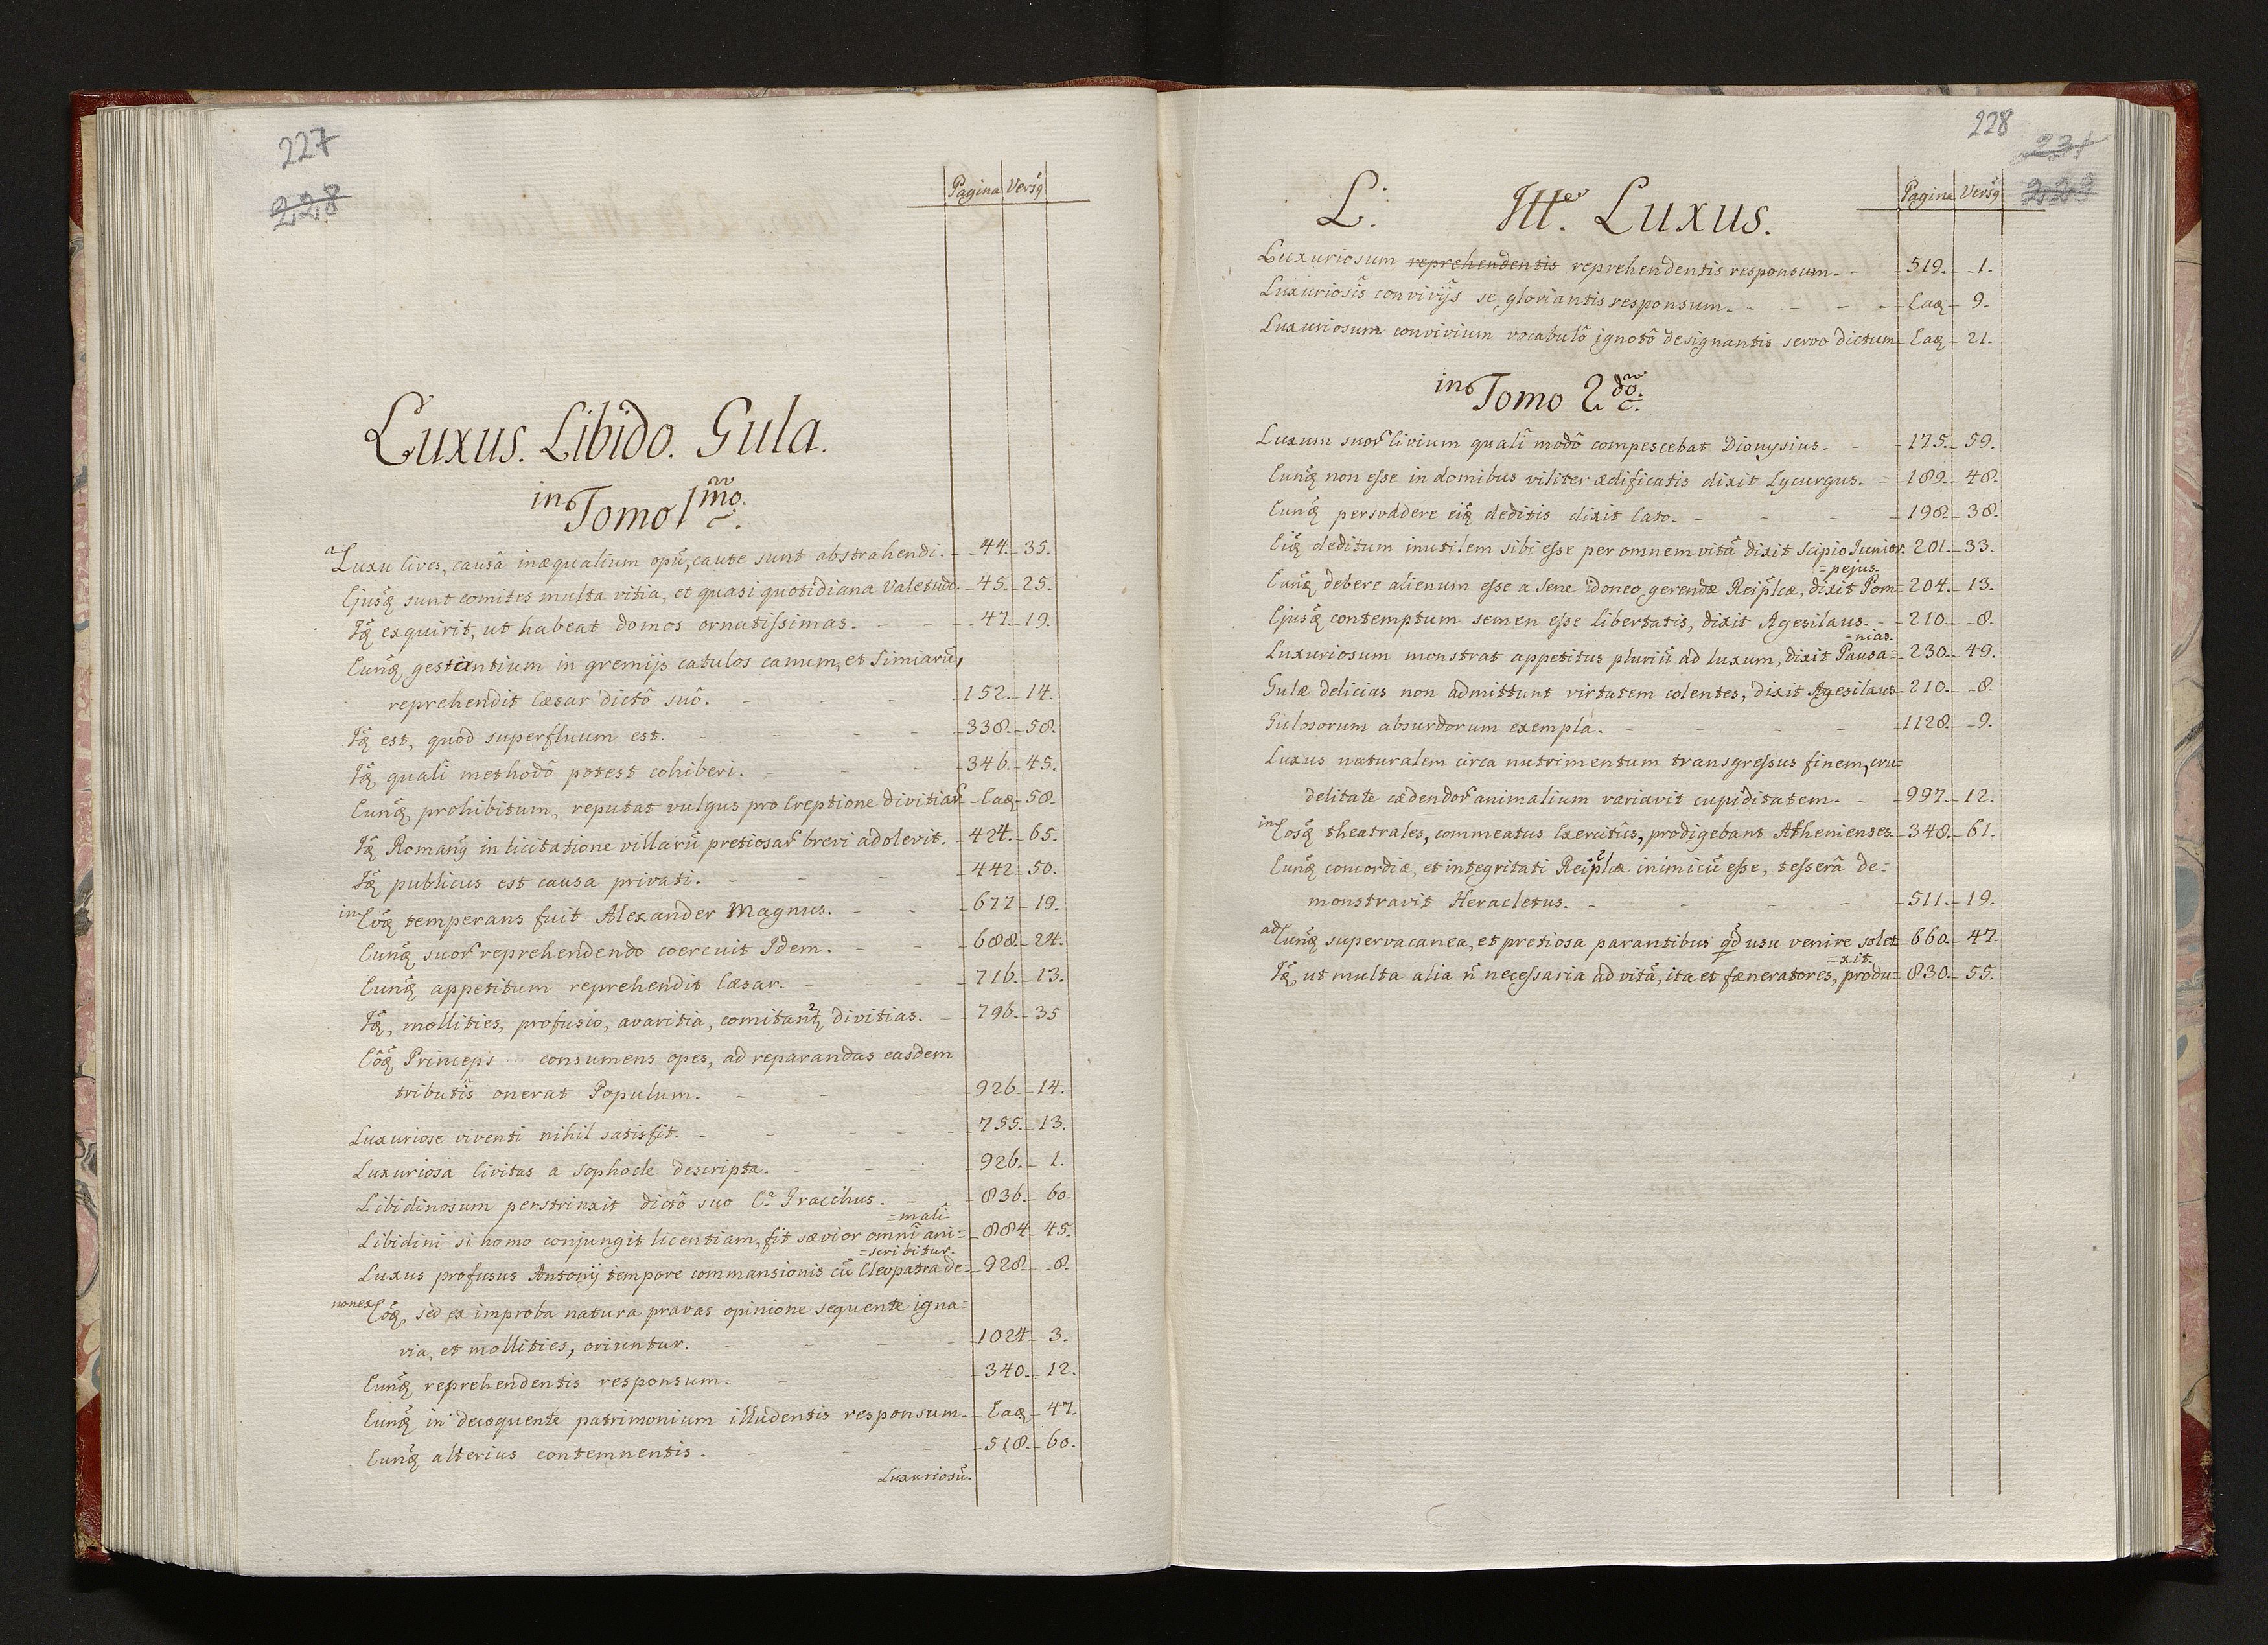 227
228
Pagina Versq
Luxus. Libido. Gula.
in Tomo 1mo.
a Luxu Cives, causâ inæqualium opũ, caute sunt abstrahendi. - 44. - 35.
Ejusq̃ sunt comites multa vitia, et quasi quotidiana Valetudo. - 45. - 25.
Iq̃ exquirit, ut habeat domos ornatissimas. - - - 47. - 19.
Eunq̃ gestantium in gremijs catulos canum, et Simiarũ,
reprehendit Cæsar dictô suô. - - - 152. - 14.
Iq̃ est, quod superfluum est. - - - - 338. - 58.
Iq̃ qualî methodô potest cohiberi. - - - 346. - 45.
Eunq̃ prohibitum, reputat vulgus pro Ereptione divitiar - Eaq - 58.
Iq̃ Romanq̃ in licitatione villarũ pretiosar brevi adolevit. - 424. - 65.
Iq̃ publicus est causa privati. - - - - 442 - 50.
in Eôq̃ temperans fuit Alexander Magnus. - - - 677 - 19.
Eunq̃ suor reprehendendo coercuit Idem. - - - 688. - 24.
Eunq̃ appetitum reprehendit Cæsar. - - - - 716. - 13.
Iq̃, mollities, profusio, avaritia, comitantq̃ divitias. - 796. - 35
Eôq̃ Princeps consumens opes, ad reparandas easdem
tributîs onerat Populum. - - - 926. - 14.
Luxuriose viventi nihil satis fit. - - - - 755. - 13.
Luxuriosa Civitas a Sophocle descripta. - - - 926. - 1.
Libidinosum perstrinxit dictô suo C. Gracchus. - - 836. - 60.
=mali.
Libidini si homo conjungit licentiam, fit sævior omnî ani= - 884 - 45.
=scribitur.
Luxus profusus Antonij tempore commansionis cũ Cleopatra de= - 928. - 8.
non ex Eôq̃, sed ex improba natura pravas opinione sequente igna=
via, et mollities, oriuntur. - - - 1024 - 3.
Eunq̃ reprehendentis responsum. - - - 340. - 12.
Eunq̃ in decoquente patrimonium illudentis responsum. - Eaq - 47.
Eunq̃ alterius contemnentis. - - - 518. - 60.
Luxuriosũ.
228
231
L. Ittê. Luxus.
Pagina Versq
Luxuriosum reprehendentis reprehendentis responsum. - - 519. - 1.
Luxuriosîs convivijs se gloriantis responsum. - - - Eaq - 9.
Luxuriosum convivium vocabulô ignotô designantis servo dictum - Eaq - 21.
in Tomo 2do.
Luxum suor Civium qualî modô compescebat Dionysius. - - 175. - 59.
Eunq̃ non esse in domibus viliter ædificatis dixit Lycurgus. - 189. - 48.
Eunq̃ persvadere eiq̃ deditis dixit Cato. - - - 198. - 38.
Eiq̃ deditum inutilem sibi esse per omnem vitã dixit Scipio Junior. 201. - 33.
=pejus.
Eunq̃ debere alienum esse a Sene idoneo gerendæ Reiplcæ, dixit Pom= 204. - 13.
Ejusq̃ contemptum semen esse Libertatis, dixit Agesilaus. - 210. - 8.
=nias.
Luxuriosum monstrat appetitus pluriũ ad luxum, dixit Pausa= 230. - 49.
Gulæ delicias non admittunt virtutem colentes, dixit Agesilaus 210. - 8.
Gulosorum absurdorum exempla. - - - - 1128. - 9.
Luxus naturalem circa nutrimentum transgressus finem, cru=
delitate cædendor animalium variavit cupiditatem. - - 997. - 12.
in Eosq̃ theatrales, commeatus Exercitûs, prodigebant Athenienses. - 348. - 61.
Eunq̃ concordiæ, et integritati Reiplcæ inimicũ esse, tesserâ de=
monstravit Heracletus. - - - - 511. - 19.
ad Eunq̃ supervacanea, et pretiosa parantibus qd usu venire solet - 660. - 47.
=xit.
Iq̃, ut multa alia ñ necessaria ad vitã, ita et fæneratores, produ= 830. - 55.